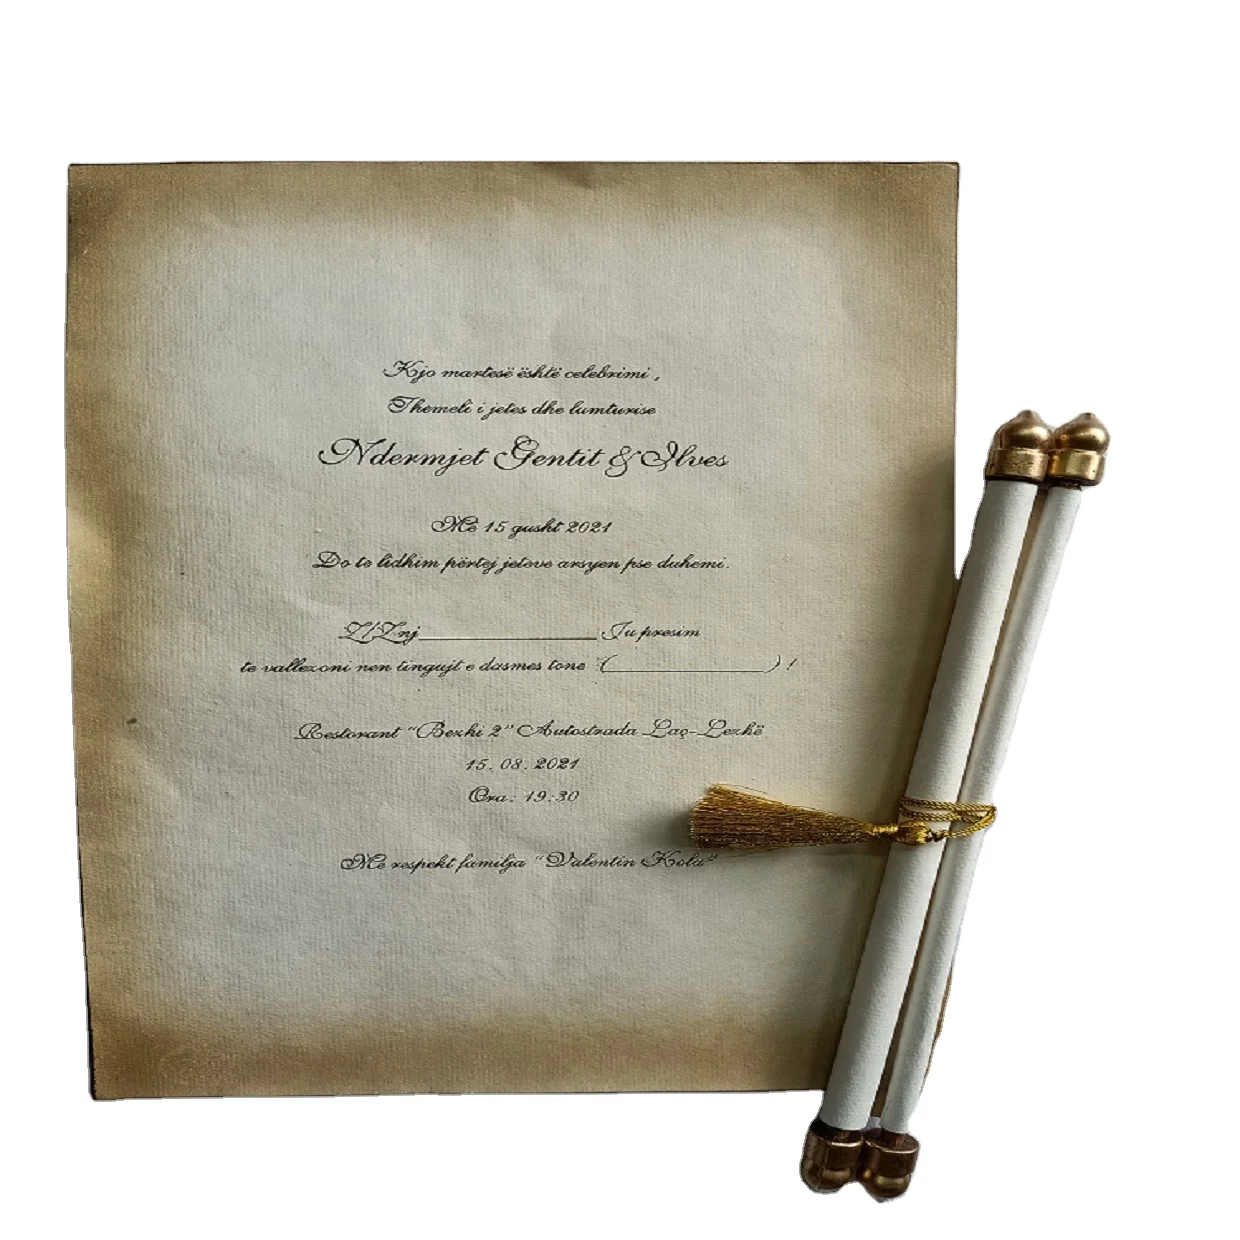 Kjo martesë është celebrimi ,
Themeli i jetes dhe lumturise
Ndermjet Gentit & Ilves
Më 15 gusht 2021
Do te lidhim përtej jeteve arsyen pse duhemi.
Z/Znj____________________ Ju presim
te vallezoni nen tingujt e dasmes tone (____________________) !
Restorant "Bezhi 2" Autostrada Laç-Lezhë
15. 08. 2021
Ora: 19:30
Me respekt familja "Valentin Kola"